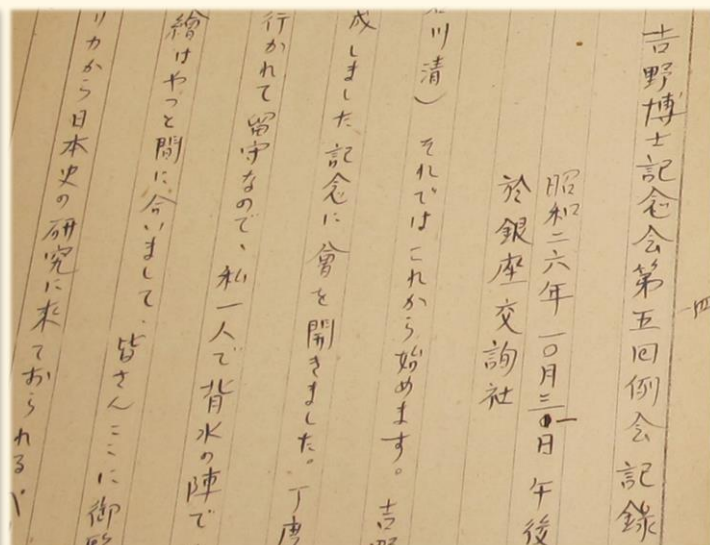 吉野博士記念会第五回例会記録
昭和二六年一〇月三一日 午後
於銀座交詢社
川清) それではこれから始めます。 吉
成しました記念に會を開きました。丁度
行かれて留守なので、私一人で背水の陣で
繪はやっと間に合いまして、皆さんここに御
リカから日本史の研究に来ておられる